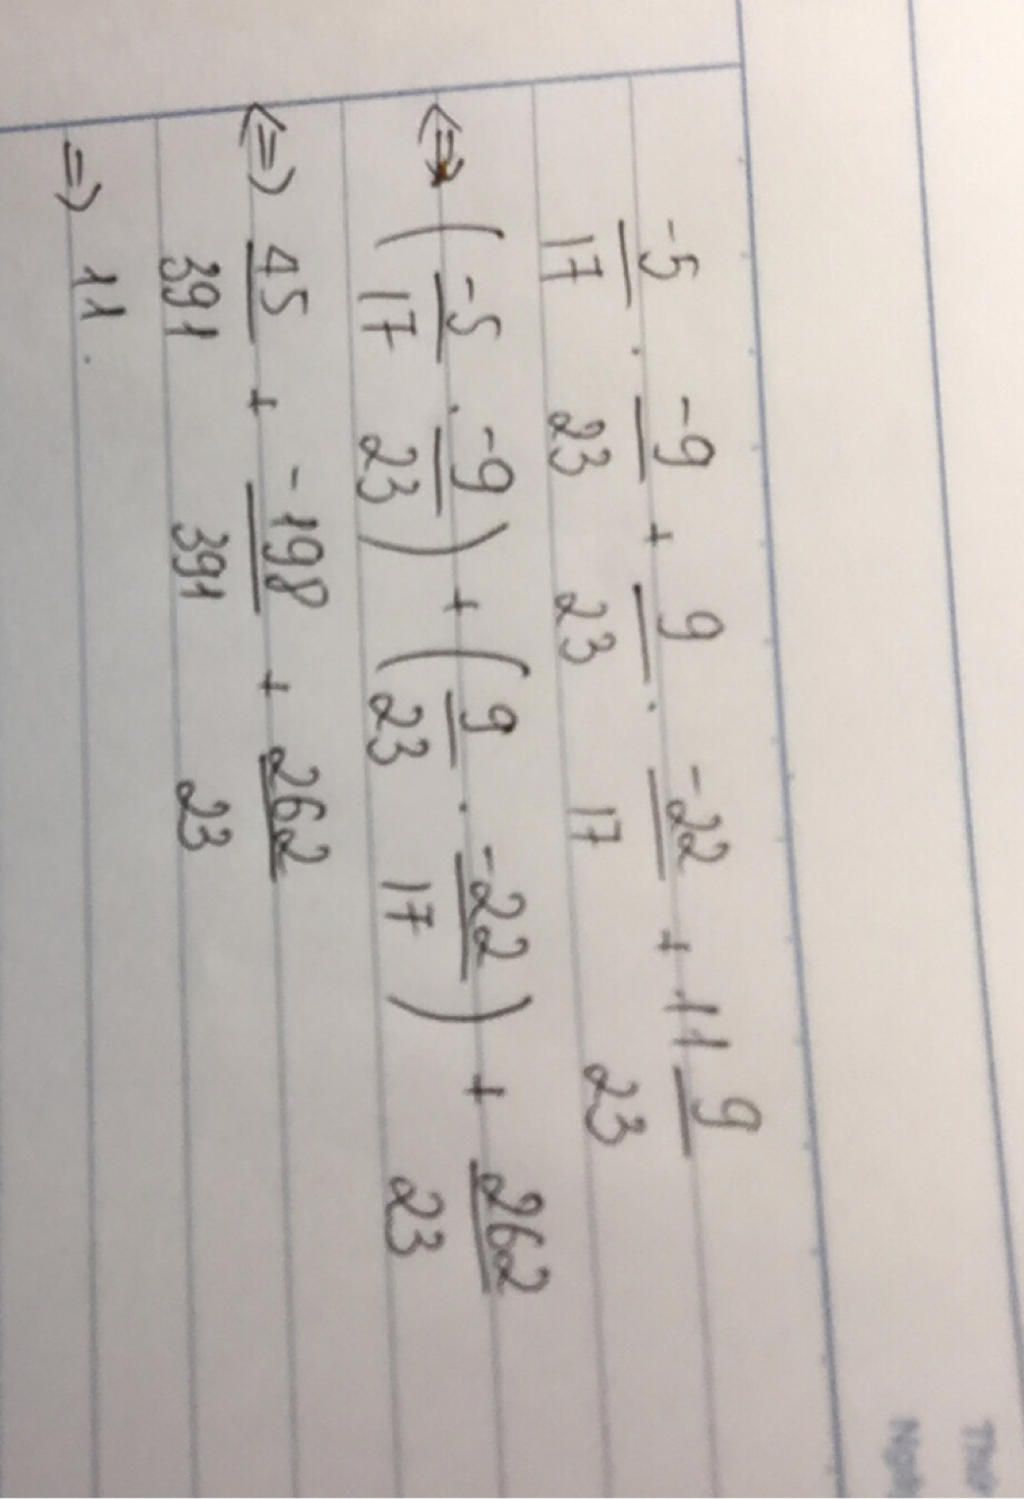 -5/17 . -9/23 + 9/23 . -22/17 + 11 9/23
<=> (-5/17 . -9/23) + (9/23 . -22/17) + 262/23
<=> 45/391 + -198/391 + 262/23
=> 11.